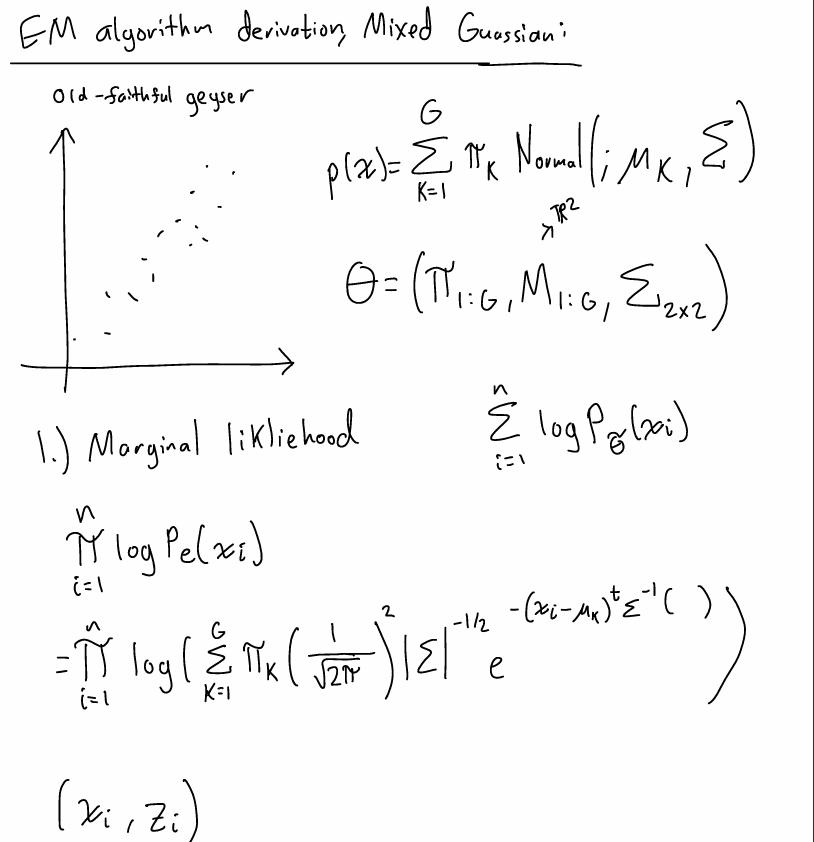 EM algorithm derivation, Mixed Guassian:
Old-faithful geyser
p(x) = ∑_{K=1}^{G} π_K Normal( ; μ_K, Σ)
↗ ℝ²
θ = (π_{1:G}, M_{1:G}, Σ_{2×2})
1.) Marginal likliehood
∑_{i=1}^{n} log P_{θ̃}(x_i)
∏_{i=1}^{n} log P_e(x_i)
= ∏_{i=1}^{n} log( ∑_{K=1}^{G} π_K (1/√2π)² |Σ|^{-1/2} e^{-(x_i-μ_K)^t Σ^{-1} ( )} )
(x_i, z_i)